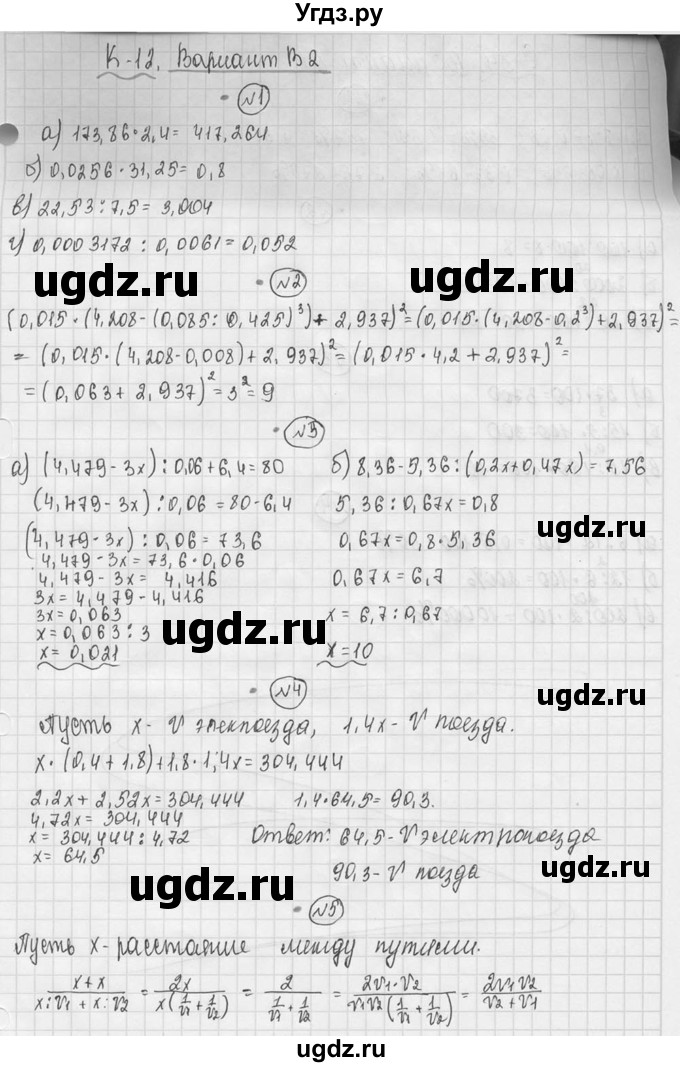 Угдз.ру
К-12. Вариант В2
№1
а) 173,86·2,4= 417,264
б) 0,0256·31,25=0,8
в) 22,53:7,5= 3,004
г) 0,0003172 : 0,0061=0,052
ugdz.ru ugdz.ru
№2
(0,015·(4,208-(0,085:0,425)³)+2,937)²=(0,015·(4,208-0,2³)+2,937)²=
= (0,015·(4,208-0,008)+2,937)²=(0,015·4,2+2,937)²=
=(0,063+2,937)²=3²=9
№3
а) (4,479-3x):0,06+6,4=80
(4,479-3x):0,06=80-6,4
(4,479-3x):0,06=73,6
4,479-3x=73,6·0,06
4,479-3x= 4,416
3x=4,479-4,416
3x=0,063
x=0,063:3
x=0,021
б) 8,36-5,36:(0,2x+0,47x)=7,56
5,36:0,67x=0,8
0,67x=0,8·5,36
0,67x=6,7
x=6,7:0,67
x=10
ugdz.ru
ugdz.ru
№4
ugdz.ru
Пусть x-V элекпоезда, 1,4x-V поезда.
x·(0,4+1,8)+1,8·1,4x=304,444
2,2x+2,52x=304,444
4,72x=304,444
x= 304,444:4,72
x= 64,5
1,4·64,5=90,3.
Ответ: 64,5-V электропоезда
90,3-V поезда
ugdz.ru
ugdz.ru
№5
Пусть x-расстояние между путями.
x+x / x:v₁+x:v₂ = 2x / x(1/v₁+1/v₂) = 2 / 1/v₁+1/v₂ = 2v₁·v₂ / v₁v₂(1/v₁+1/v₂) = 2v₁v₂ / v₂+v₁
ugdz.ru